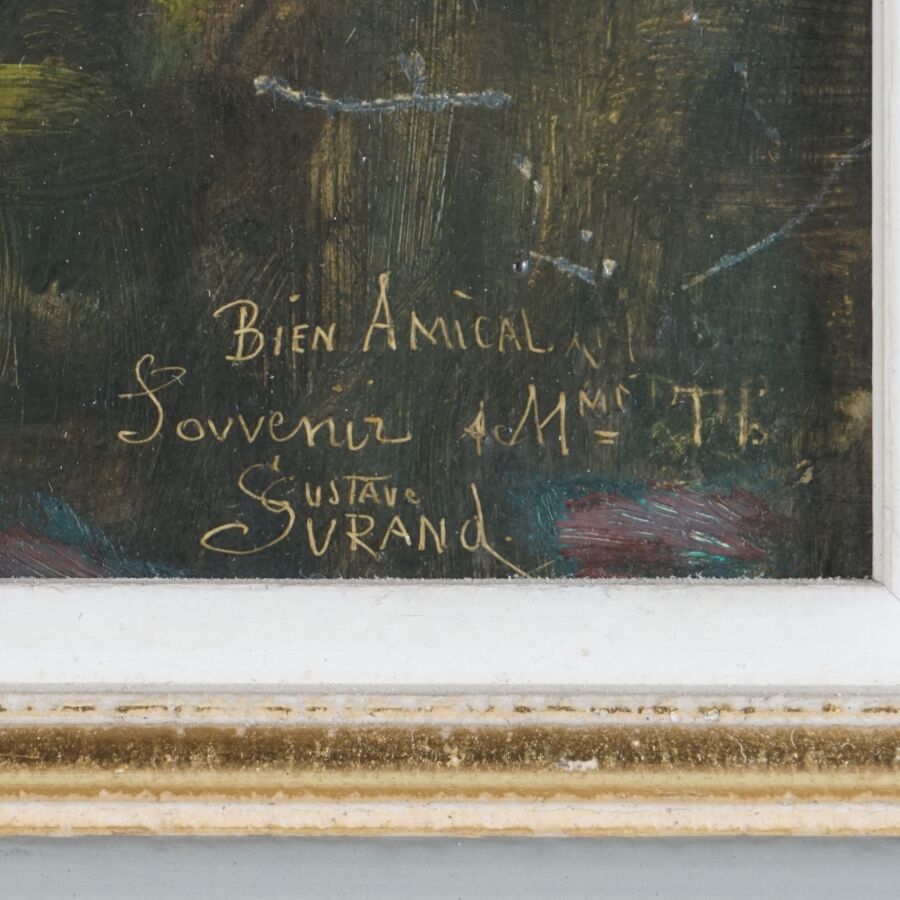 BIEN AMICAL
Souvenir A Mme
GUSTAVE
SURAND.